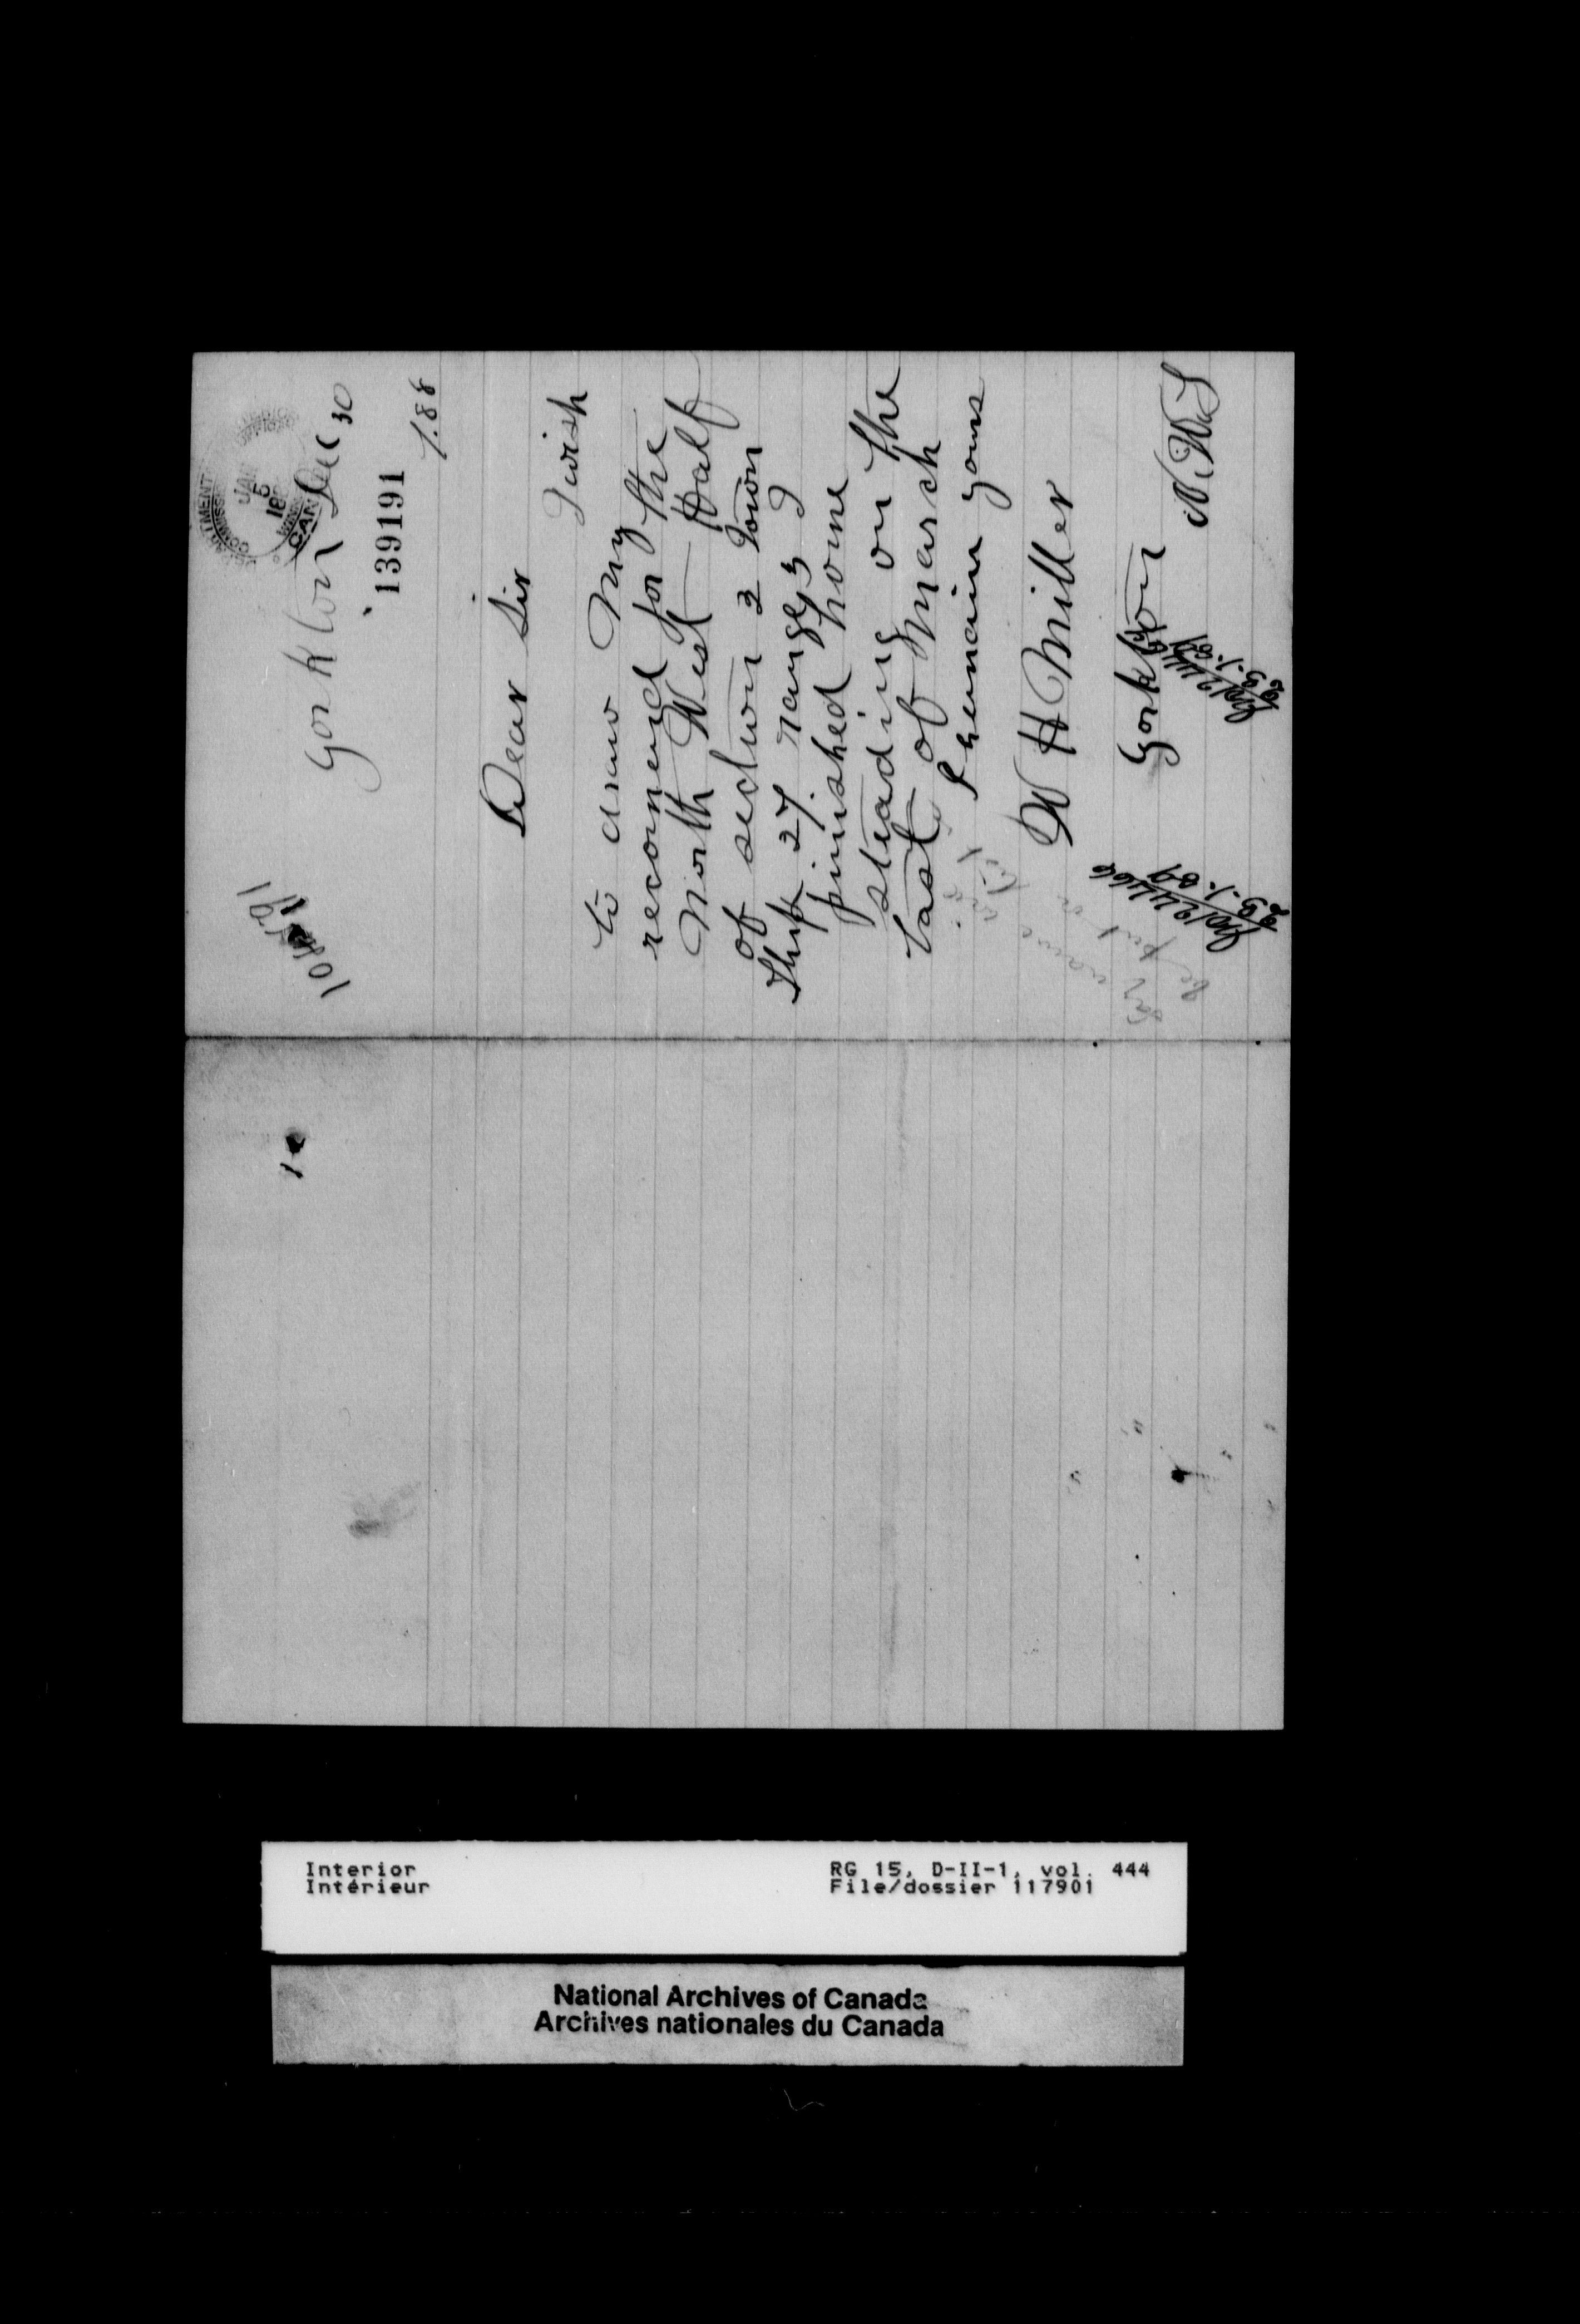 Yorkton Dec 30
139191
1.88
JAN 5
CAN
Dear Sir
I wish
to draw My
recomend for the
North West Half
of section 2 Town
Ship 27 range 3 I
finished home
steading on the
last of March
I remain yours
W H Miller
Yorkton
N.W.T
23.1.89
23.1.89
Interior
Intérieur
RG 15, D-II-1, vol. 444
File/dossier 117901
National Archives of Canada
Archives nationales du Canada